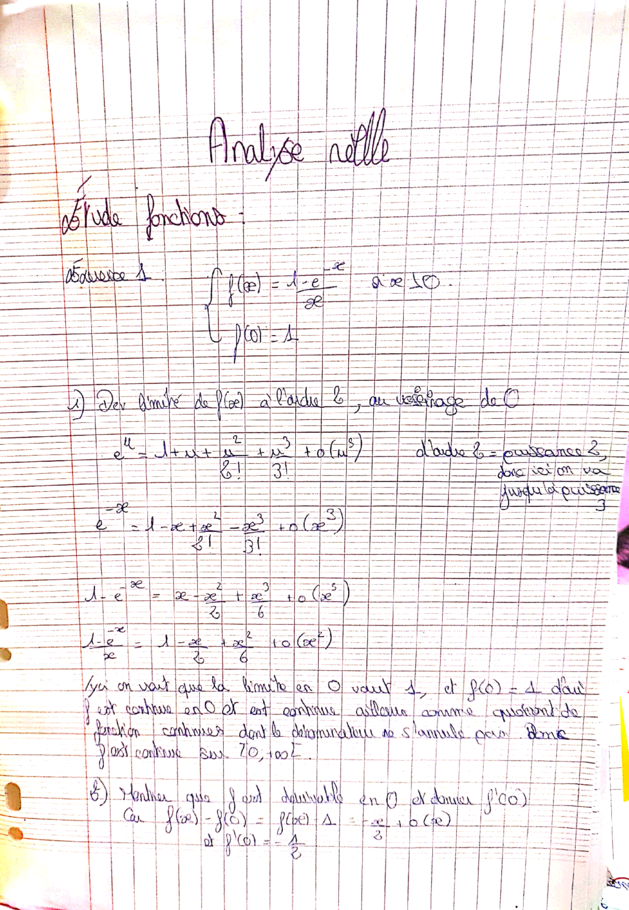 Analyse réelle
Étude fonctions :
Exercice 1
{ f(x) = (1-e^{-x})/x si x > 0.
f(0) = 1
1) Dev limité de f(x) à l'ordre 2, au voisinage de 0
e^u = 1 + u + u²/2! + u³/3! + o(u³)
d'ordre 2 = puissance 2,
donc ici on va
jusqu'à puissance
3
e^{-x} = 1 - x + x²/2! - x³/3! + o(x³)
1 - e^{-x} = x - x²/2 + x³/6 + o(x³)
(1-e^{-x})/x = 1 - x/2 + x²/6 + o(x²)
on voit que la limite en 0 vaut 1, et f(0) = 1 d'où
f est continue en 0 et est continue ailleurs comme quotient de
fonction continues dont le dénominateur ne s'annule pas donc
f est continue sur
2) Montrer que f est dérivable en 0 et donner f'(0)
Car f(x) - f(0) = f(x) 1 = -x/2 + o(x)
et f'(0) = -1/2